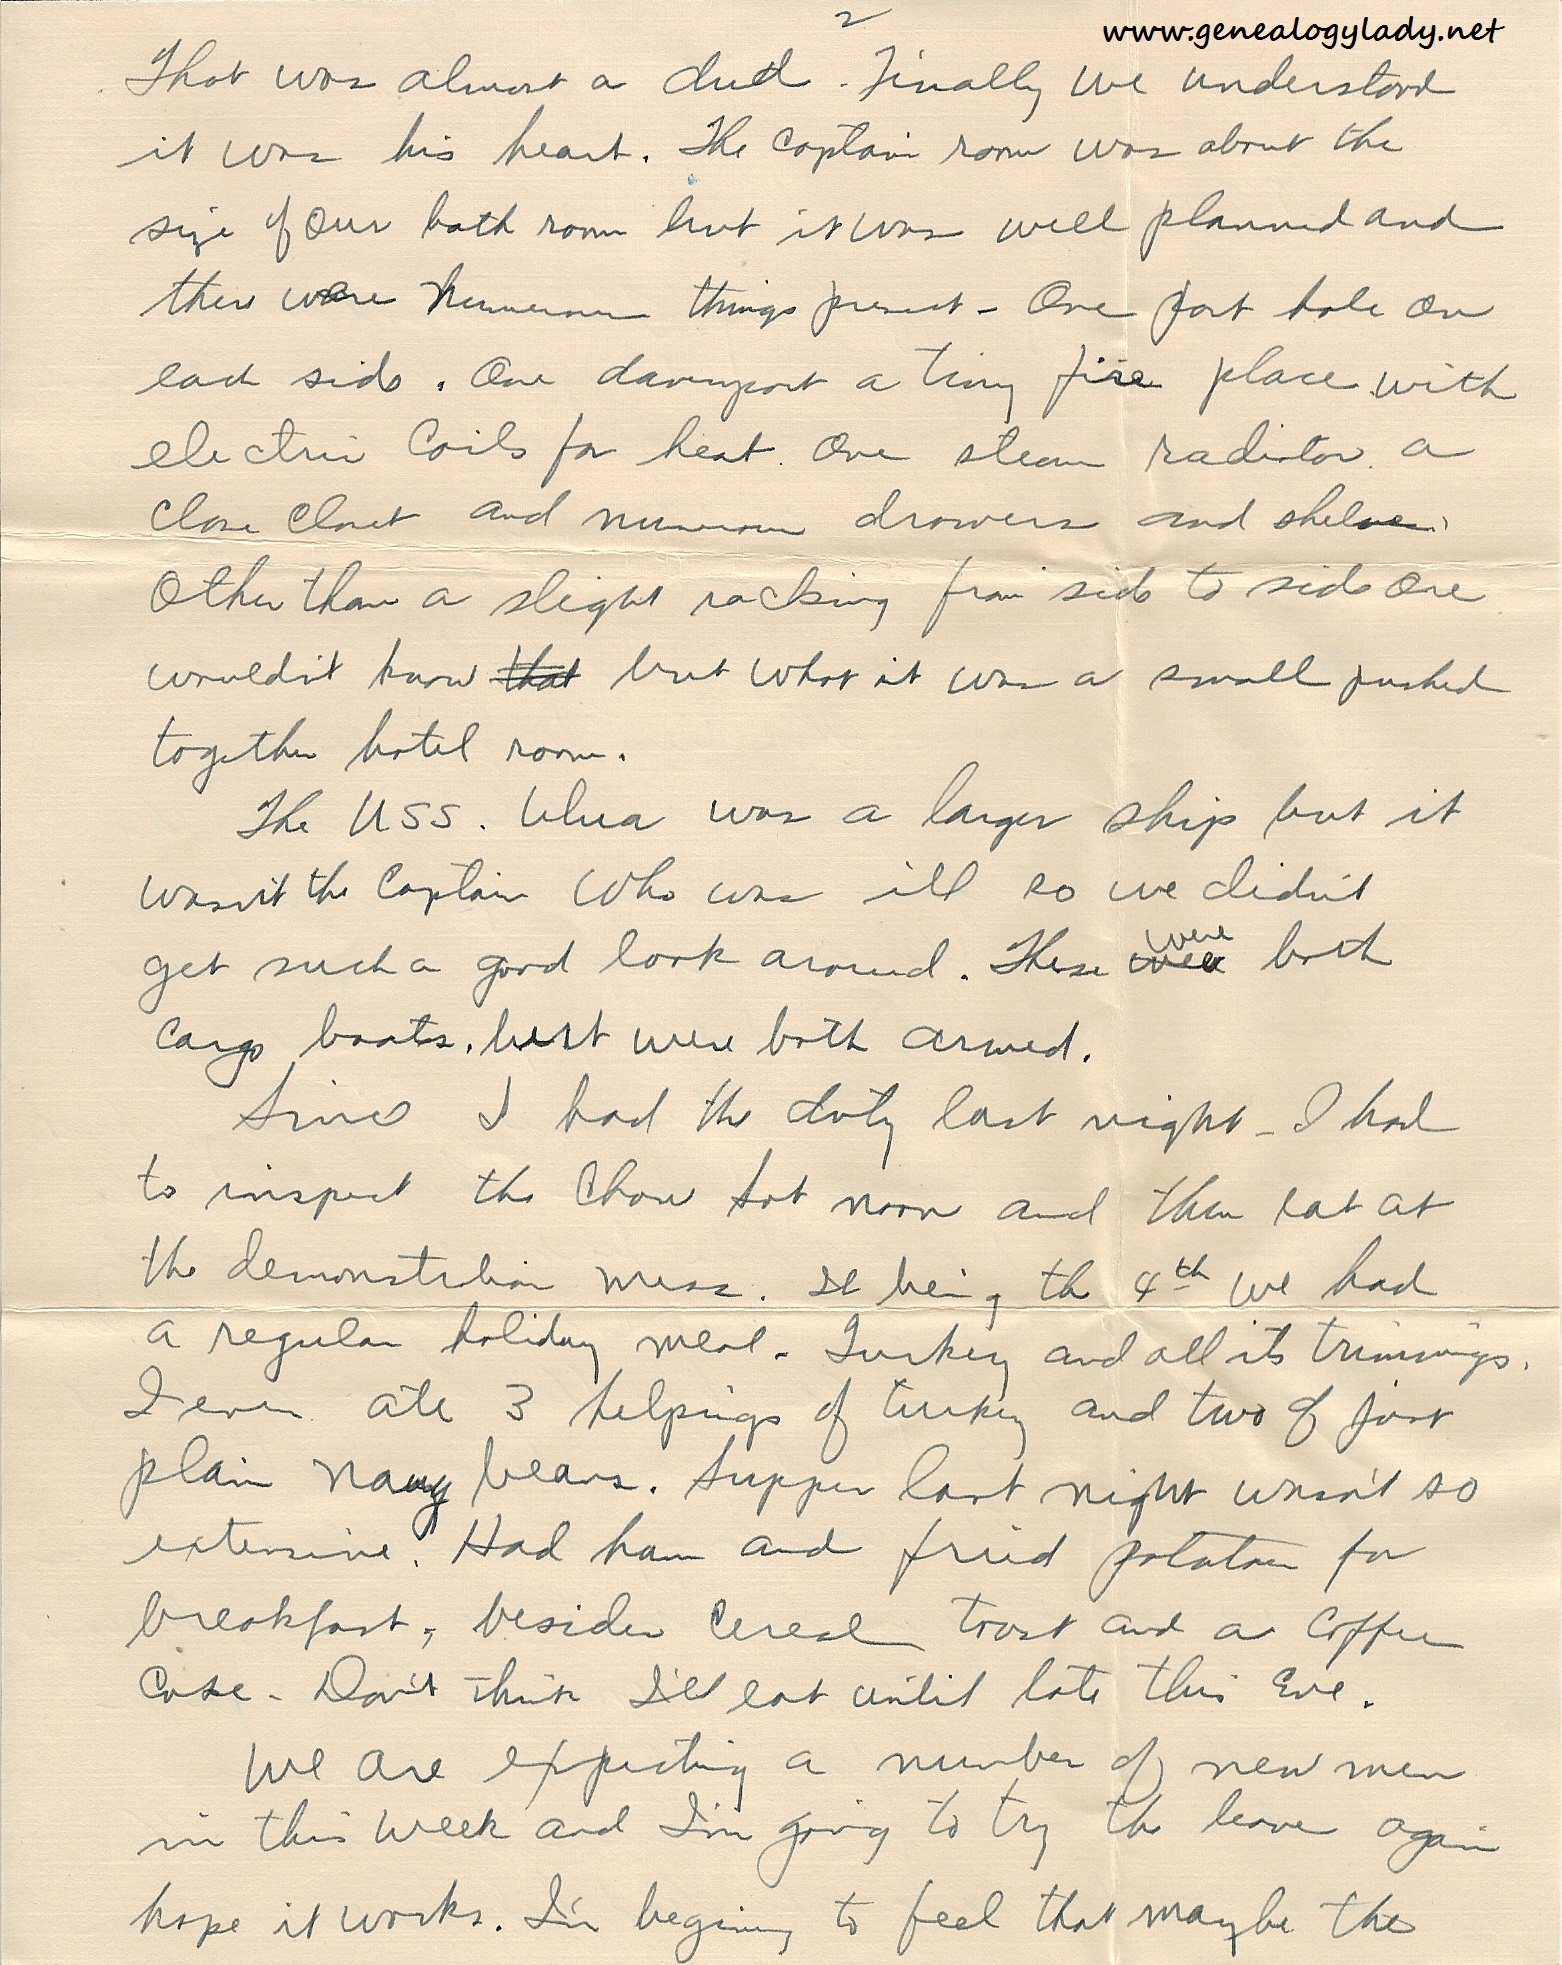 2
www.genealogylady.net
That was almost a dud. Finally we understood
it was his heart. The captain room was about the
size of our bath room but it was well planned and
there were numerous things present - One port hole on
each side. One davenport a tiny fire place with
electric coils for heat. One steam radiator. a
close closet and numerous drawers and shelves.
Other than a slight rocking from side to side one
wouldn't know that but what it was a small pushed
together hotel room.
The USS. Ulua was a larger ship but it
wasn't the Captain who was ill so we didn't
get such a good look around. These were both
cargo boats. but were both armed.
Since I had the duty last night - I had
to inspect the chow at noon and then eat at
the demonstration mess. It being the 4th we had
a regular holiday meal - Turkey and all its trimmings.
I even ate 3 helpings of turkey and two of just
plain navy beans. Supper last night wasn't so
extensive. Had ham and fried potatoes for
breakfast, besides cereal toast and a coffee
cake - Don't think I'll eat until late this Eve.
We are expecting a number of new men
in this week and I'm going to try the leave again
hope it works. I'm begining to feel that maybe the